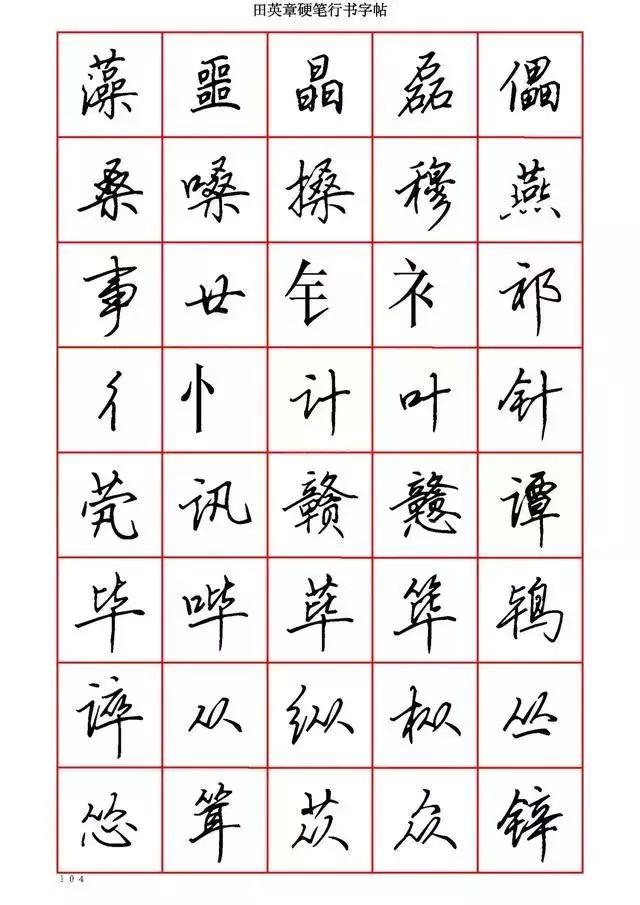 田英章硬笔行书字帖
藻 噩 晶 磊 儡
桑 嗓 搡 穆 燕
事 廿 钅 衤 祁
彳 忄 计 叶 针
茕 讯 赣 戆 谭
毕 哔 荜 筚 鸨
谇 从 纵 枞 丛
怂 耸 苁 众 锌
104